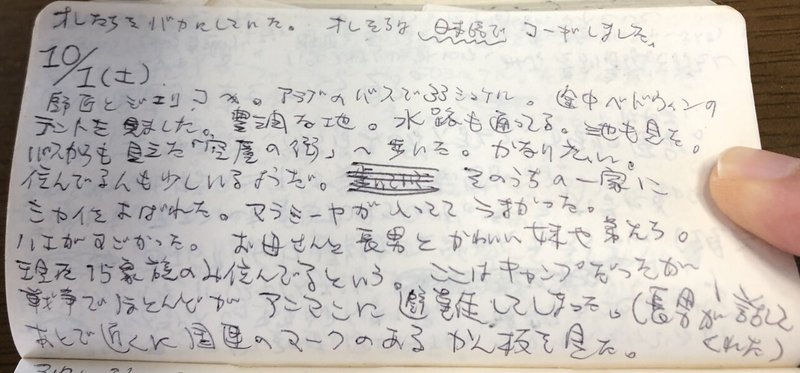 オレたちをバカにしていた。オレそろは日本語でコーギしました。
10/1(土)
師匠とジェリコへ。アラブのバスで33シェケル。途中ベドウィンの
テントを見ました。豊潤な地。水路も通ってる。池も見た。
バスからも見えた「空虚の街」へ歩いた。かなり広い。
住んでる人も少しいるようだ。そのうちの一家に
ミカイをよばれた。マラミーヤが入っててうまかった。
ハエがすごかった。お母さんと長男とかわいい妹や弟たち。
現在15家族のみ住んでるという。ここはキャンプだったが
戦争でほとんどがアンマンに避難してしまった。(長男が話して
くれた)
あとで近くに国連のマークのあるかん板を見た。